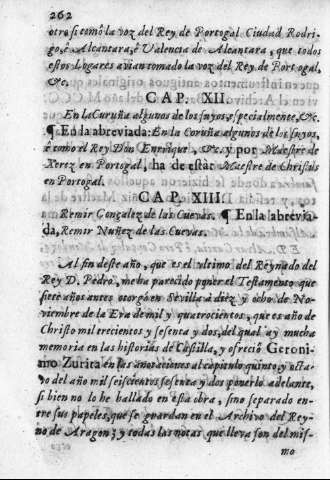 262
otro si tomô la voz del Rey de Portogal Ciudad Rodri-
go, é Alcantara, é Valencia de Alcantara, que todos
estos Lugares avian tomado la voz del Rey de Portogal,
&c.
CAP. XII.
En la Curuña algunos de los suyos, especialmente, &c.
¶ En la abreviada: En la Coruña algunos de los suyos,
é como el Rey Dõn Enrrique, &c. y por Maestre de
Xerez en Portogal, ha de estàr Maestre de Christus
en Portogal.
CAP. XIII.
Remir Gonçalez de las Cuevas. ¶ En la abrevia-
da, Remir Nuñez de las Cuevas.
Al fin deste año, que es el vltimo del Reynado del
Rey D. Pedro, me ha parecido poner el Testamento que
siete años antes otorgò en Sevilla à diez y ocho de No-
viembre de la Era de mil y quatrocientos, que es año de
Christo mil trecientos y sesenta y dos, del qual ay mucha
memoria en las historias de Castilla, y ofreciò Geroni-
mo Zurita en las anotaciones al capitulo quinto, y octa-
vo del año mil seiscientos sesenta y dos ponerlo adelante,
si bien no lo he ballado en esta obra, sino separado en-
tre sus papeles, que se guardan en el Archivo del Rey-
no de Aragon; y todas las notas que lleva son del mis-
mo